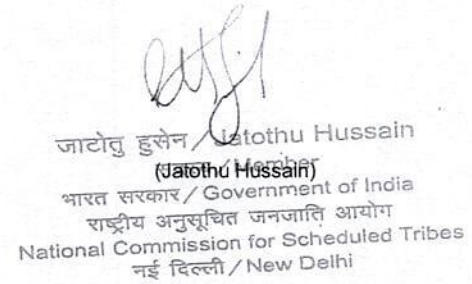 जाटोतु हुसेन / Jatothu Hussain
/ Member
(Jatothu Hussain)
भारत सरकार / Government of India
राष्ट्रीय अनुसूचित जनजाति आयोग
National Commission for Scheduled Tribes
नई दिल्ली / New Delhi